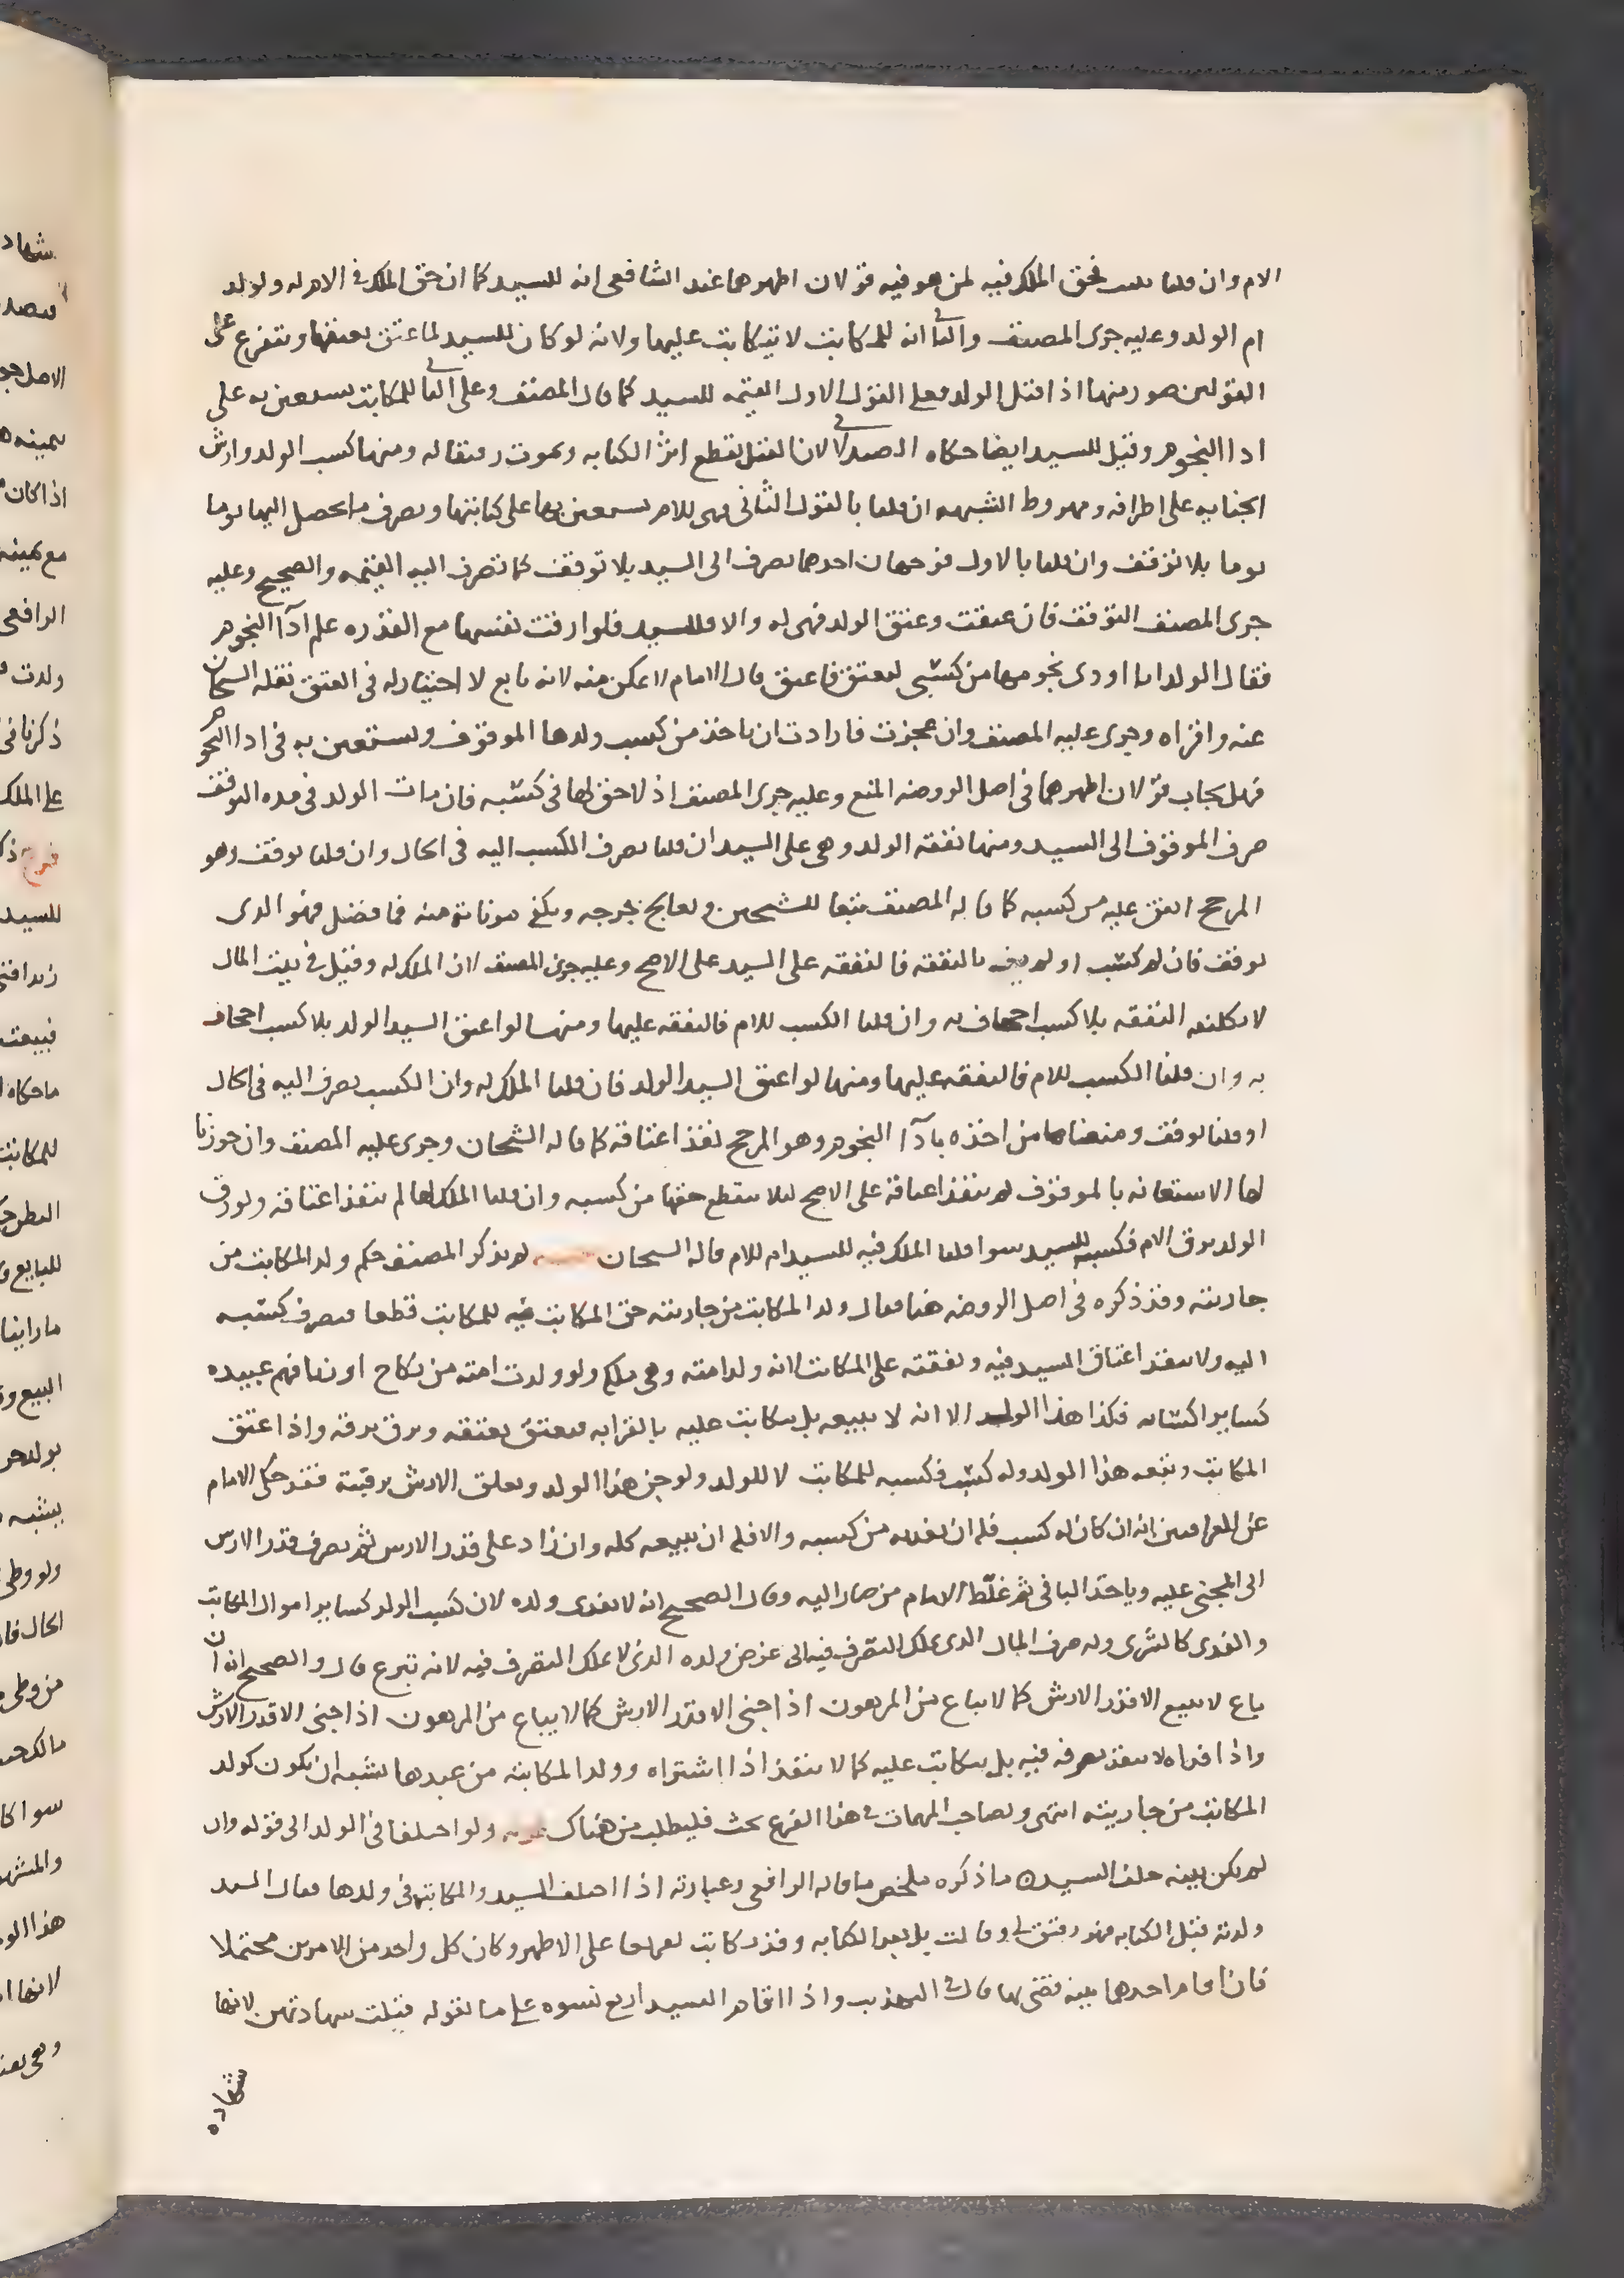 الام وان قلنا يثبت فحق الملك فيه لمن هو فيه قولان اظهرهما عند الشافعي انه للسيد كما ان حق الملك في الام له وولد
ام الولد وعليه جرى المصنف والثاني انه للمكاتبة لانه يتكاتب عليها ولانه لو كان للسيد لما عتق بعتقها ويتفرع على
القولين صور منها اذا قتل الولد فعلى القول الاول القيمه للسيد كما قال المصنف وعلى الثاني للمكاتبة تستعين به على
اداء النجوم وقيل للسيد ايضا حكاه الصيدلاني لان القتل يقطع اثر الكتابه ويموت رقيقا له ومنها كسب الولد وارش
الجنايه على اطرافه ومهر وطا الشبهه ان قلنا بالقول الثاني فهي للام تستعين بها على كتابتها ويصرف ما يحصل اليها يوما
يوما بلا توقف وان قلنا بالاول فوجهان احدهما يصرف الى السيد بلا توقف كما تصرف اليه القيمه والصحيح وعليه
جرى المصنف التوقف فان عتقت وعتق الولد فهي له والا فللسيد فلو ارقت نفسها مع القدره على آداا النجوم
فقال الولد انا اودى نجومها من كسبي لتعتق فاعتق قال الامام لا يمكن منه لانه تابع لا اختيار له في العتق نقله الشيخان
عنه واقراه وجرى عليه المصنف وان عجزت فارادت ان تاخذ من كسب ولدها الموقوف وتستعين به في اداا النجوم
فهل تجاب قولان اظهرهما في اصل الروضه المنع وعليه جرى المصنف اذ لا حق لها في كسبه فان مات الولد في مده التوقف
صرف الموقوف الى السيد ومنها نفقه الولد وهي على السيد ان قلنا يصرف الكسب اليه في الحال وان قلنا يوقف وهو
المرجح انفق عليه من كسبه كما قاله المصنف تبعا للشيخين ويعالج جرحه ويكفى مونات منه فما فضل فهو الذى
يوقف فان لم كسب او لم يف بالنفقه فالنفقه على السيد على الاصح وعليه جرى المصنف لان الملك له وقيل في بيت المال
لان تكليفه النفقه بلا كسب اجحاف به وان قلنا الكسب للام فالنفقه عليها ومنها لو اعتق السيد الولد بلا كسب اجحاف
به وان قلنا الكسب للام فالنفقه عليها ومنها لو اعتق السيد الولد فان قلنا الملك له وان الكسب يصرف اليه في الحال
او قلنا يوقف ومنعناها من اخذه باداا النجوم وهو المرجح نفذ اعتاقه كما قاله الشيخان وجرى عليه المصنف وان جوزنا
لها الاستعانه بالموقوف لم ينفذ اعتاقه على الاصح ليلا ينقطع حقها من كسبه وان قلنا الملك لها لم ينفذ اعتاقه ولو رق
الولد برق الام فكسبه للسيد سوا قلنا الملك فيه للسيد ام للام قاله الشيخان لم يذكر المصنف حكم ولد المكاتب من
جاريته وقد ذكره في اصل الروضه هنا فقال ولد المكاتب من جاريته حق المكاتب فيه للمكاتب قطعا فيصرف كسبه
اليه ولا ينفذ اعتاق السيد فيه ونفقته على المكاتب لانه ولد امته وهي ملكه ولو ولدت امته من نكاح او زنا فهم عبيده
كساير اكسابه فكذا هذا الولد الا انه لا يبيعه بل يتكاتب عليه بالقرابه فيعتق بعتقه ويرق برقه واذا عتق
المكاتب وتبعه هذا الولد وله كسب فكسبه للمكاتب لا للولد ولو جنى هذا الولد وتعلق الارش برقبته فقد حكى الامام
عن العراقيين انه ان كان له كسب فله ان يفديه من كسبه والا فله ان يبيعه كله وان زاد على قدر الارش ثم يصرف قدر الارش
الى المجني عليه وياخذ الباقي ثم غلّط الامام من صار اليه وقال الصحيح انه لا يفدى ولده لان كسب الولد كساير اموال المكاتب
والفدى كالشرى وله صرف المال الذى يملك التصرف فيه الى عرض ولده الذى لا يملك التصرف فيه لانه تبرع قال والصحيح انه ان
باع لا يبيع الا قدر الارش كما لا يباع من المرهون اذا جنى الا قدر الارش كما لا يباع من المرهون اذا جنى الا قدر الارش
واذا فداه لا ينفذ تصرفه فيه بل يتكاتب عليه كما لا ينفذ اذا اشتراه وولد المكاتبه من عبدها يشبه ان يكون كولد
المكاتب من جاريته انتهى ولصاحب المهمات في هذا الفرع بحث فليطلب من هناك ولو اختلفا في الولد الى قوله وان
لم يكن بينه حلف السيد ما ذكره ملخص ما قاله الرافعي وعبارته اذا اختلف السيد والمكاتبه في ولدها فقال السيد
ولدته قبل الكتابه فهو رقيق لي وقالت بل بعد الكتابه وقد تكاتب تفريعا على الاظهر وكان كل واحد من الامرين محتملا
فان اقام احدهما بينه قضى بها قال في التهذيب واذا اقام السيد اربع نسوه على ما يقوله قبلت شهادتهن لانها
شهاده